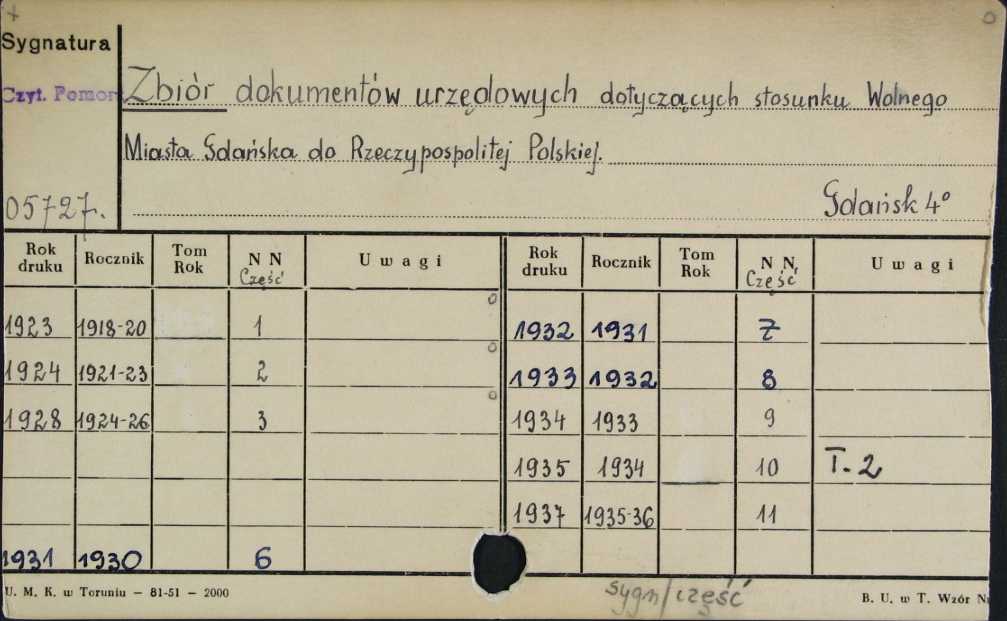 Sygnatura
Czyt. Pomor
Zbiór dokumentów urzędowych dotyczących stosunku Wolnego
Miasta Gdańska do Rzeczypospolitej Polskiej.
05727.
Gdańsk 4°
Rok druku Rocznik Tom Rok N N Część Uwagi Rok druku Rocznik Tom Rok N N Część Uwagi
1923 1918-20 1 1932 1931 7
1924 1921-23 2 1933 1932 8
1928 1924-26 3 1934 1933 9
1935 1934 10 T. 2
1937 1935-36 11
1931 1930 6
U. M. K. w Toruniu — 81-51 — 2000
sygn/część
B. U. w T. Wzór